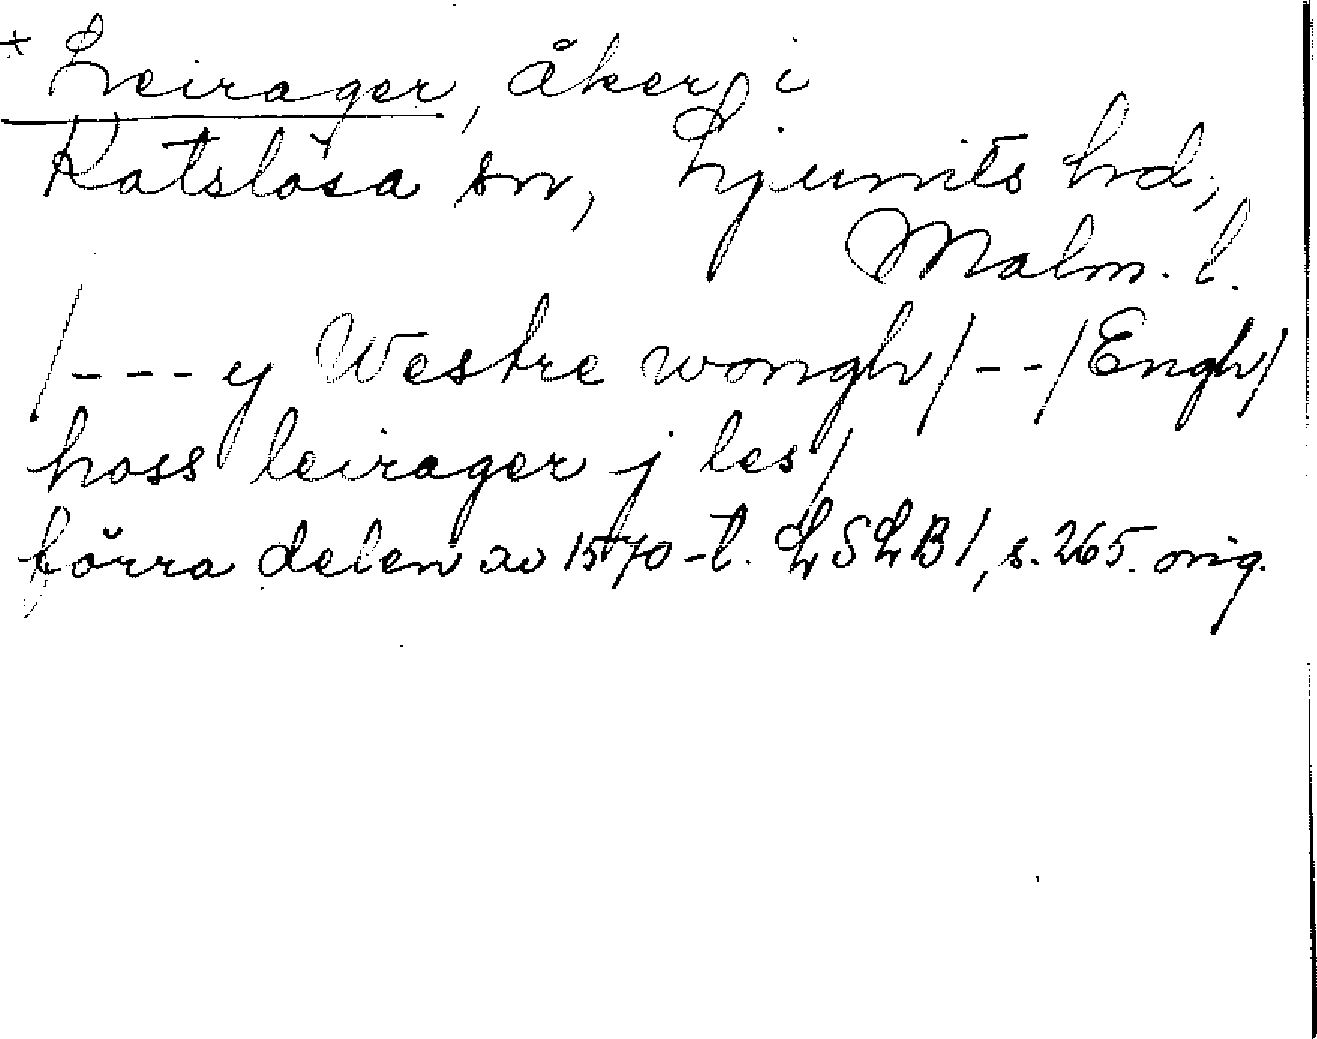 + Leirager, åker i
Katslösa sn, Ljunits hd,
Malm. l.
/--- y Westre wongh/--/Engh/
hoss leirager j les/
förra delen av 1570-t. LSLB1, s. 265. orig.